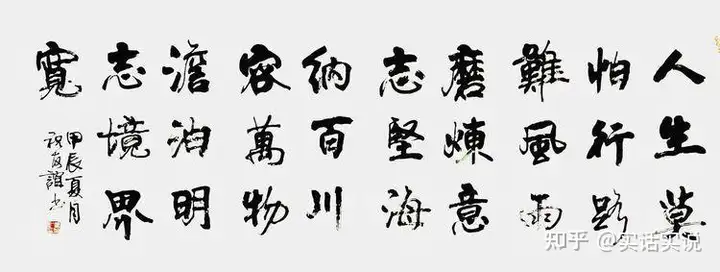 人生莫
怕行路
難風雨
磨煉意
志堅海
納百川
容萬物
澹泊明
志境界
寬
甲辰夏月
知乎 @实话实说